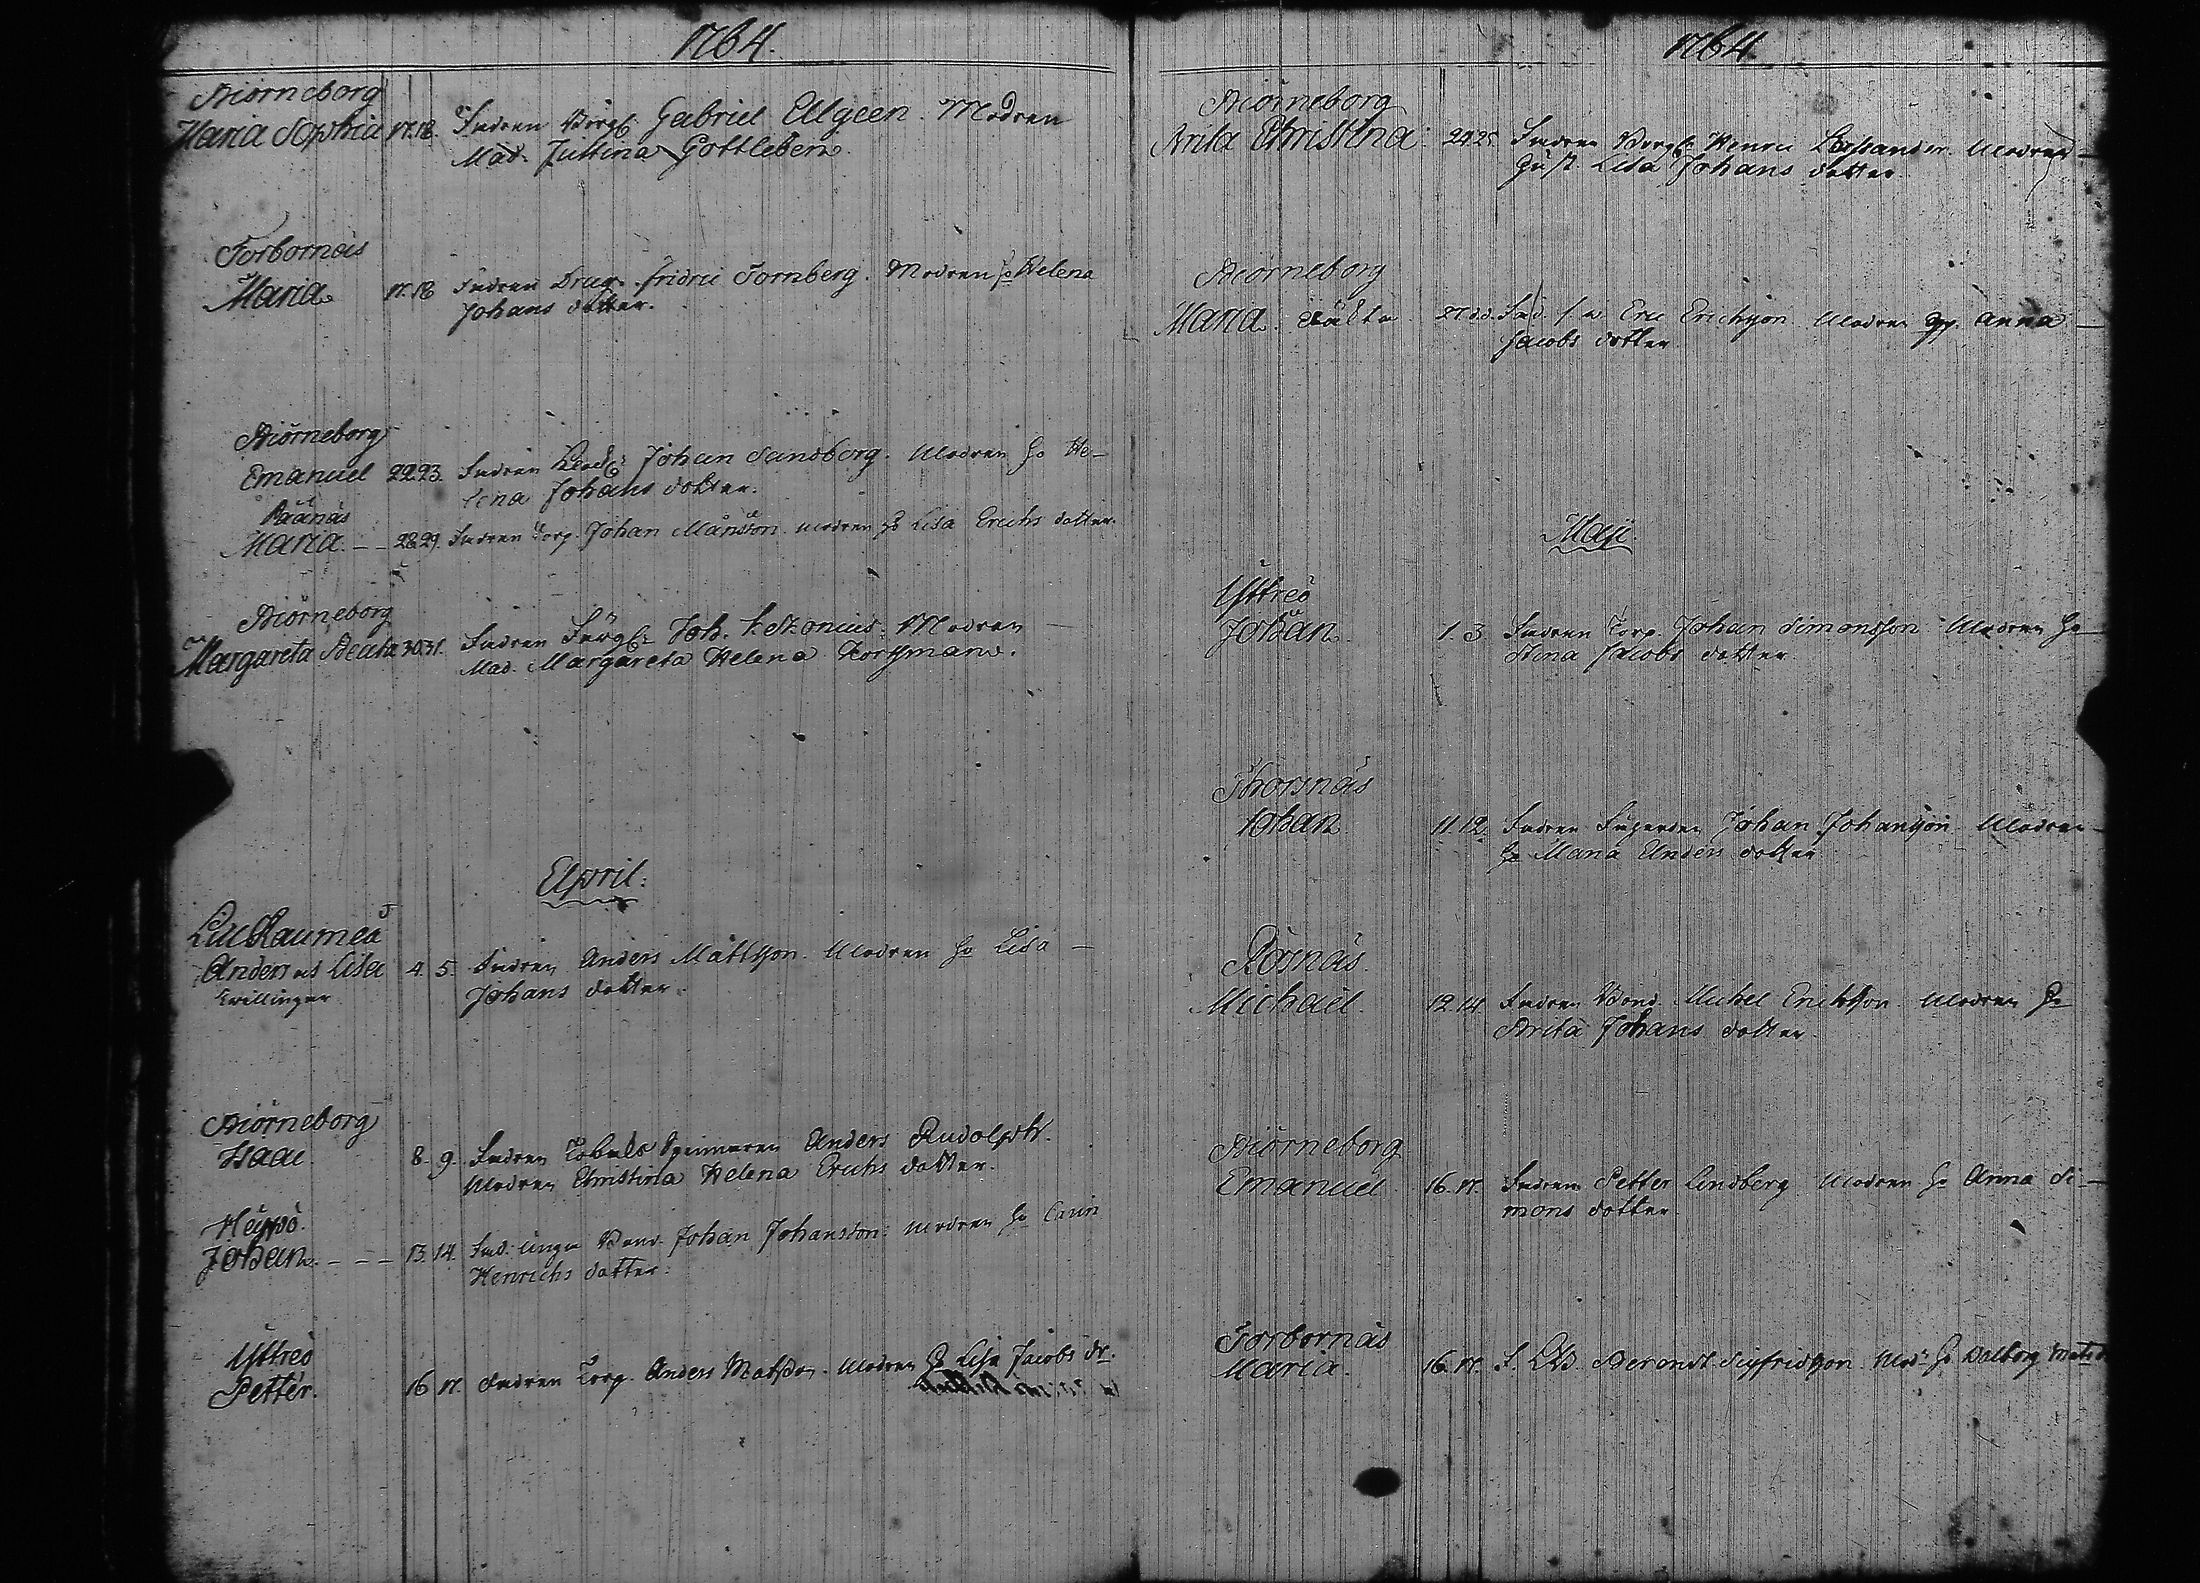 1764.
Biörneborg
Maria Sophia 17.18. Fadren Borg. Gabriel Ellgeen. Modren
Mad. Justina Gottleben.
Torbornäs
Maria 17.18 Fadren Drag. Fridric Tornberg. Modren H. Helena
Johans dotter.
Biörneborg
Emanuel 22.23. Fadren Johan Sandberg. Modren H. He-
lena Johans dotter.
Råånäs
Maria. - - 28.29. Fadren Torp. Johan Månsson. Modren H. Lisa Erichs dotter.
Biörneborg
Margareta Beata 30.31. Fadren Joh. Modren
Mad. Margareta Helena
April.
Lill Raumeå
Anders och Lisa 4. 5. Fadren Anders Mattsson. Modren H. Lisa -
Tvillingar Johans dotter.
Biörneborg
Isaac 8. 9. Fadren Tobaks Spinnaren Anders Rudolph.
Modren Christina Helena Erichs dotter.
Heijsö.
Johan. - - - 13.14. Fad. unga Bond. Johan Johansson. Modren H. Carin
Henrichs dotter.
Yttreö
Petter. 16 17. Fadren Torp. Anders Matsson. Modren H. Lisa Jacobs dr.
1764.
Biörneborg
Anta Christina 24.25. Fadren Borg. Henric Modren -
Hust. Lisa Johans dotter.
Biörneborg
Maria. oäkta 27. Fad. Eric Erichson Modren Anna -
Jacobs dotter
Maji.
Yttreö
Johan 1. 3 Fadren Torp. Johan Simonsson Modren H.
Stina Jacobs dotter
Thorsnäs
Johan 11.12 Fadren Johan Johansson Modren -
H. Maria Anders dotter
Rosnäs.
Michaël. 12.14. Fadren Bond. Michel Ericksson Modren H.
Brita Johans dotter.
Biörneborg
Emanuel 16.17. Fadren Petter Lindberg Modren H. Anna Si-
mons dotter.
Torbornäs
Maria. 16.17. F. Berendt Sigfridsson. Mod. H. Walborg